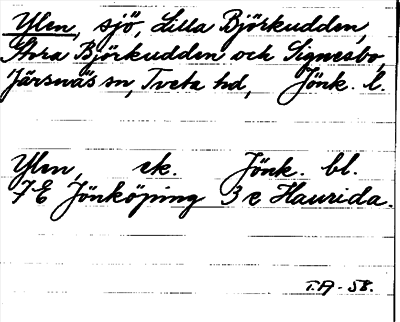 Ylen, sjö, Lilla Björkudden,
Stora Björkudden och Signesbo,
Järsnäs sn, Tveta hd, Jönk. l.
Ylen, ek. Jönk. bl.
7 E Jönköping 3 e Haurida.
T.A - 58.